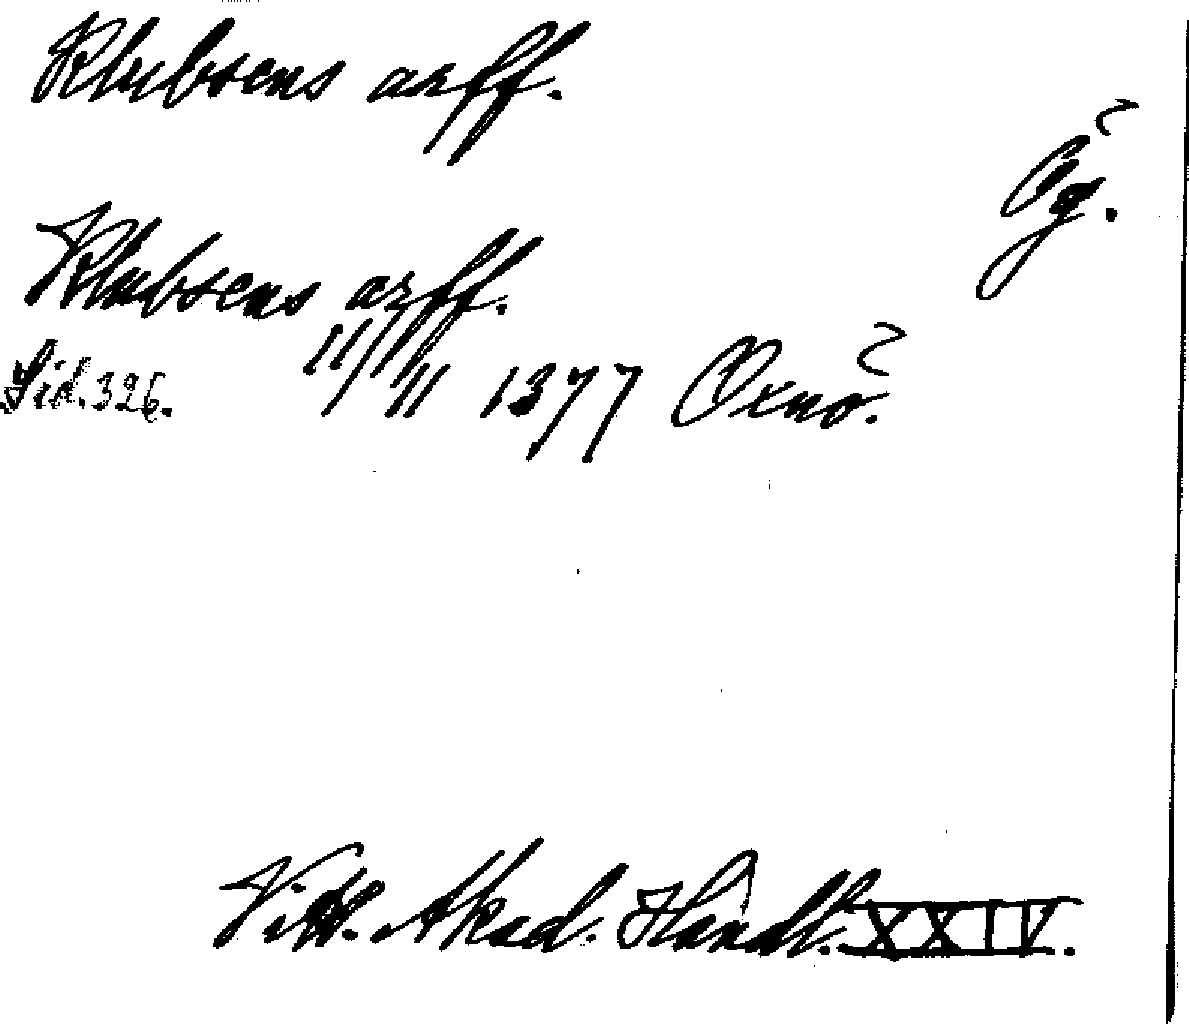 Klubsens arff.
Ög.
Klubsens arff.
Sid. 326. 11/11 1377 Oxnö.
Vitt. Akad. Handl. XXIV.